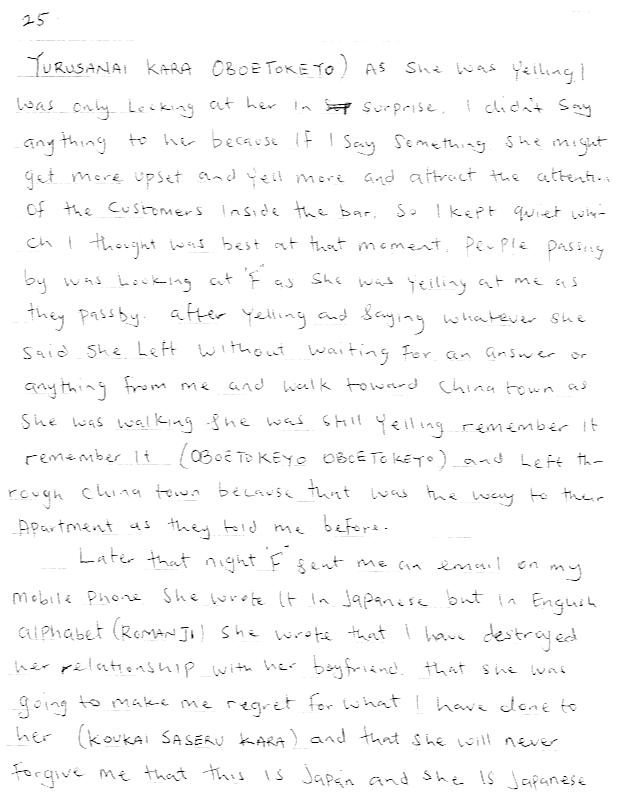 25
YURUSANAI KARA OBOETOKETO) AS She was Yelling I
was only Looking at her in surprise. I didn't say
anything to her because if I say something she might
get more upset and yell more and attract the attention
of the Customers inside the bar. So I kept quiet whi-
ch I thought was best at that moment. People passing
by was Looking at "F" as she was yelling at me as
they passby. after yelling and saying whatever she
said she Left without waiting for an answer or
anything from me and walk toward China town as
she was walking she was still Yelling remember it
remember it (OBOETOKEYO OBOETOKEYO) and Left th-
rough China town because that was the way to their
Apartment as they told me before.
Later that night "F" sent me an email on my
mobile Phone She wrote it in Japanese but in English
alphabet (ROMANJI) she wrote that I have destroyed
her relationship with her boyfriend. that she was
going to make me regret for what I have done to
her (KOUKAI SASERU KARA) and that she will never
forgive me that this is Japan and she is Japanese